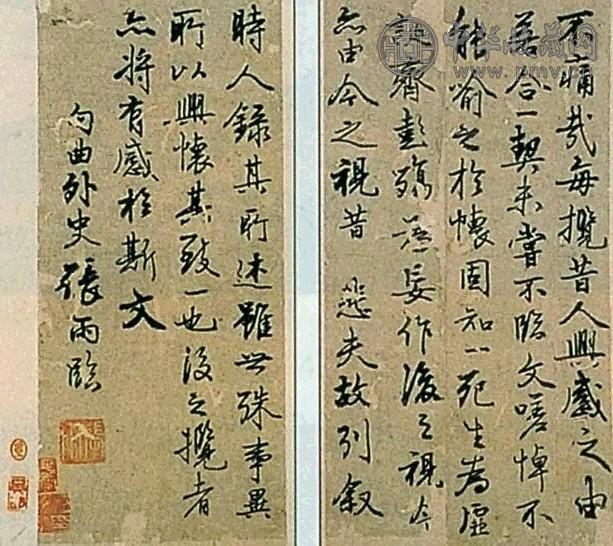 不痛哉每攬昔人興感之由
若合一契未嘗不臨文嗟悼不
能喻之於懷固知一死生為虛
誕齊彭殤為妄作後之視今
亦由今之視昔 悲夫故列叙
時人錄其所述雖世殊事異
所以興懷其致一也後之攬者
亦將有感於斯文
句曲外史張雨臨
中华收藏网
www.pmv.cn